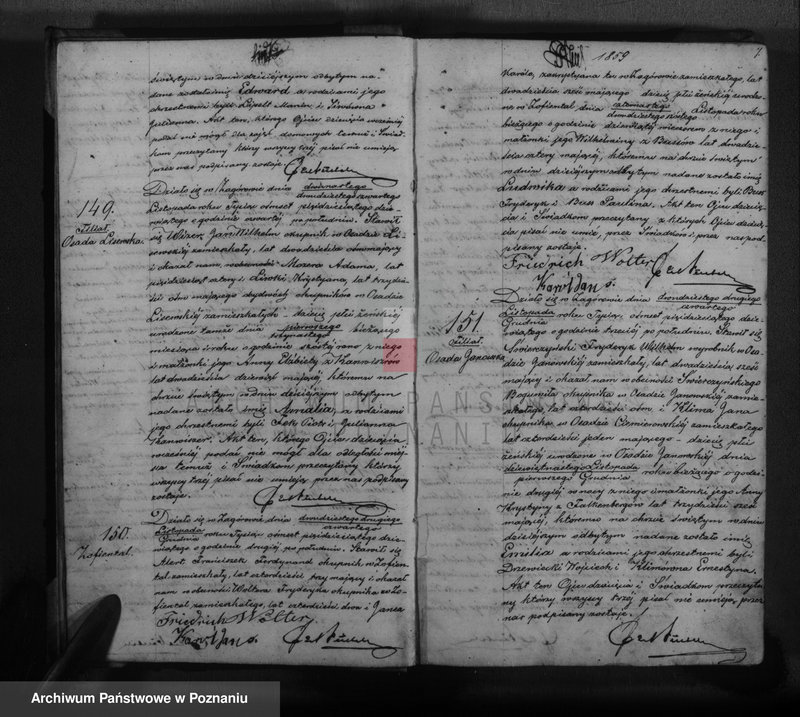 świętym w dniu dzisiejszym odbytym na-
dane zostało imię Edward a rodzicami jego
chrzestnemi byli Lipelt Marcin i
Julianna. Akt ten, którego Ojciec dziecięcia wcześniej
podać nie mógł dla zajść domowych temuż i Świad-
kom przeczytany który wszyscy trzej pisać nie umieją
przez nas podpisany został.
149.
Filial.
Osada Lisewska
Działo się w Zagórowie dnia dwunastego
dwudziestego czwartego
Listopada roku Tysiąc ośmset pięćdziesiątego dzie-
wiątego o godzinie czwartej po południu. Stawił
się Jan Wilhelm okupnik w Osadzie Li-
sewskiej zamieszkały, lat dwadzieścia ośm mający
i okazał nam, w obecności Mozera Adama, lat
pięćdziesiąt cztery i Krystyana, lat trzydzie-
ści ośm mającego obydwóch okupników w Osadzie
Lisewskiej zamieszkałych – dziecię płci żeńskiej
urodzone tamże dnia pierwszego bieżącego
miesiąca i roku o godzinie szóstej rano z niego
i małżonki jego Anny Elżbiety z
lat dwadzieścia dziewięć mającej, któremu na
chrzcie świętym w dniu dzisiejszym odbytym
nadane zostało imię Amalia, a rodzicami
jego chrzestnemi byli Piotr i Julianna
Akt ten, którego Ojciec dziecięcia
wcześniej podać nie mógł dla odległości miej-
sca temuż i Świadkom przeczytany którzy
wszyscy trzej pisać nie umieją przez nas podpisany
został.
150.
Zofiental.
Działo się w Zagórowie dnia dwudziestego drugiego
czwartego
Listopada
Grudnia roku Tysiąc ośmset pięćdziesiątego dzie-
wiątego o godzinie drugiej po południu. Stawił się
Alert Franciszek Ferdynand okupnik w Zofien-
tal zamieszkały, lat czterdzieści trzy mający i okazał
nam w obecności Woltera Fryderyka okupnika w Zo-
fiental zamieszkałego, lat czterdzieści dwa i Jansa
Friedrich Wolter
Karol Jan s.
1859
7
Karola, zamieszkałego, lat
dwadzieścia sześć mającego dziecię płci żeńskiej urodzo-
ne w Zofiental dnia czternastego Listopada roku
dwudziestego szóstego
bieżącego o godzinie dziewiątej wieczorem z niego i
małżonki jego Wilhelminy z Bussów lat dwadzie-
ścia cztery mającej, któremu na chrzcie świętym
w dniu dzisiejszym odbytym nadane zostało imię
a rodzicami jego chrzestnemi byli Buss
Fryderyk i Buss Paulina. Akt ten Ojcu dziecię-
cia i Świadkom przeczytany z których Ojciec dziecię-
cia pisać nie umie, przez Świadków i przez nas pod-
pisany został.
Friedrich Wolter
Karol Jan s.
151.
Filial.
Osada Janowska
Działo się w Zagórowie dnia dwudziestego drugiego
czwartego
Listopada
Grudnia roku Tysiąc ośmset pięćdziesiątego dzie-
wiątego o godzinie trzeciej po południu. Stawił się
Świerczyński Fryderyk Wilhelm wyrobnik w Osa-
dzie Janowskiej zamieszkały, lat dwadzieścia sześć
mający i okazał nam w obecności Świerczyńskiego
Bogumiła okupnika w Osadzie Janowskiej zamie-
szkałego, lat czterdzieści ośm, i Klima Jana
okupnika w Osadzie Ciemierowskiej zamieszkałego
lat czterdzieści jeden mającego – dziecię płci
żeńskiej urodzone w Osadzie Janowskiej dnia
dziewiętnastego Listopada roku bieżącego o godzi-
pierwszego Grudnia
nie drugiej w nocy z niego i małżonki jego Anny
Krystyny z Falkenbergów lat trzydzieści sześć
mającej, któremu na chrzcie świętym w dniu
dzisiejszym odbytym nadane zostało imię
Emilia a rodzicami jego chrzestnemi byli
Drzewiecki Wojciech i Klimowna Ernestyna.
Akt ten Ojcu dziecięcia i Świadkom przeczyta-
ny którzy wszyscy trzej pisać nie umieją, przez
nas podpisany został.
Archiwum Państwowe w Poznaniu